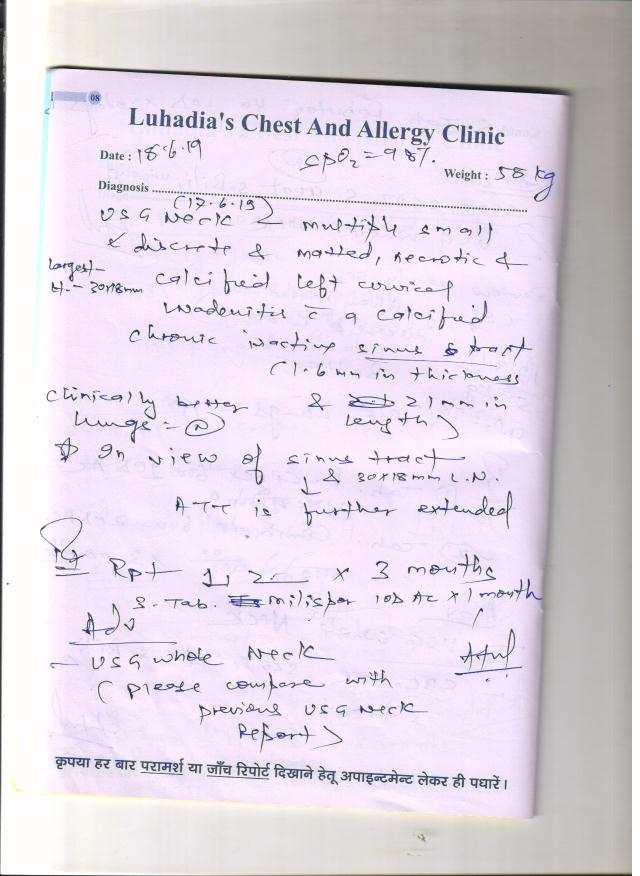 08
Luhadia's Chest And Allergy Clinic
Date : 18.6.19 SpO2 = 98%.
Weight : 58 kg
Diagnosis
(17.6.19)
USG Neck multiple small
& discrete & matted, necrotic &
largest - calcified left cervical
30x18mm lnadenitis c̄ a calcified
chronic inactive sinus tract
(1.6 mm in thickness
clinically better & 21mm in
lungs = N length)
In view of sinus tract
& 30x18mm L.N.
ATT is further extended
Rx
Rpt 1, 2 x 3 months
3. Tab. 10D AC x 1 month
Adv
- USG whole Neck
(please compare with
previous USG Neck
Report)
कृपया हर बार परामर्श या जाँच रिपोर्ट दिखाने हेतू अपाइन्टमेन्ट लेकर ही पधारें।